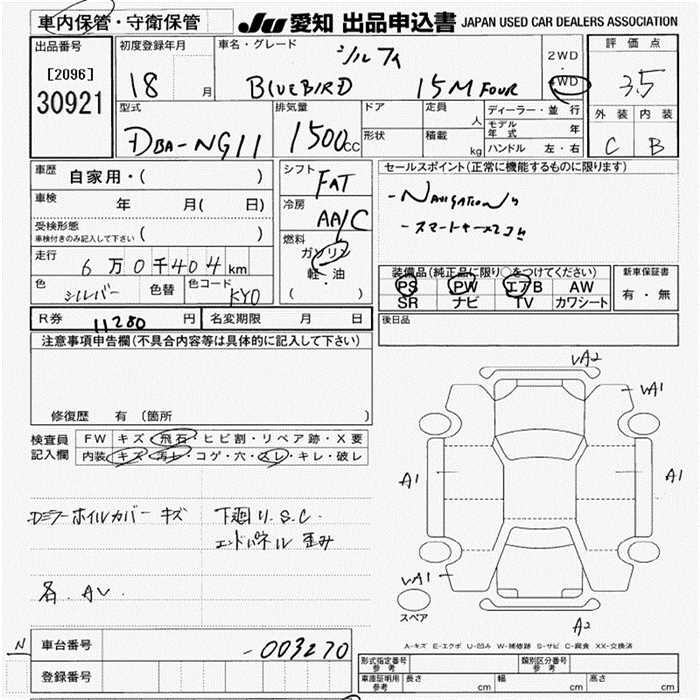 車内保管・守衛保管
JU 愛知 出品申込書 JAPAN USED CAR DEALERS ASSOCIATION
出品番号
[2096]
30921
初度登録年月
18 月
車名・グレード
シルフィ
BLUEBIRD 15M FOUR
2WD
・
4WD
評価点
3.5
外装 内装
C B
型式
DBA-NG11
排気量
1500cc
ドア
形状
定員
人
積載
kg
ディーラー・並行
モデル年式 年
ハンドル 左・右
車歴 自家用・( )
車検 年 月( 日)
受検形態
車検付きのみ記入して下さい ( )
走行 6万0千404km
色 シルバー 色替 色コード KY0
シフト FAT
冷房 AA/C
燃料
ガソリン
軽・油
( )
セールスポイント(正常に機能するものに限ります)
-NAVIGATION
-スマートキー×2コ
装備品(純正品に限り○をつけてください)
PS PW エアB AW
SR ナビ TV カワシート
新車保証書
有・無
R券 11280 円 名変期限 月 日
後日品
注意事項申告欄(不具合内容等は具体的に記入して下さい)
修復歴 有 (箇所 )
検査員記入欄
FW キズ・飛石・ヒビ割・リペア跡・X要
内装 キズ・汚レ・コゲ・穴・スレ・キレ・破レ
Dミラー ホイルカバー キズ
下廻り.S.C.
エンドパネル 歪み
各.AU.
VA2
VA1
A1
A1
VA1
A2
スペア
A-キズ E-エクボ U-凹み W-補修跡 S-サビ C-腐食 XX-交換済
N
車台番号 -003270
登録番号
形式指定番号 参考
類別区分番号 参考
車庫証明用 参考 長さ cm 幅 cm 高さ cm